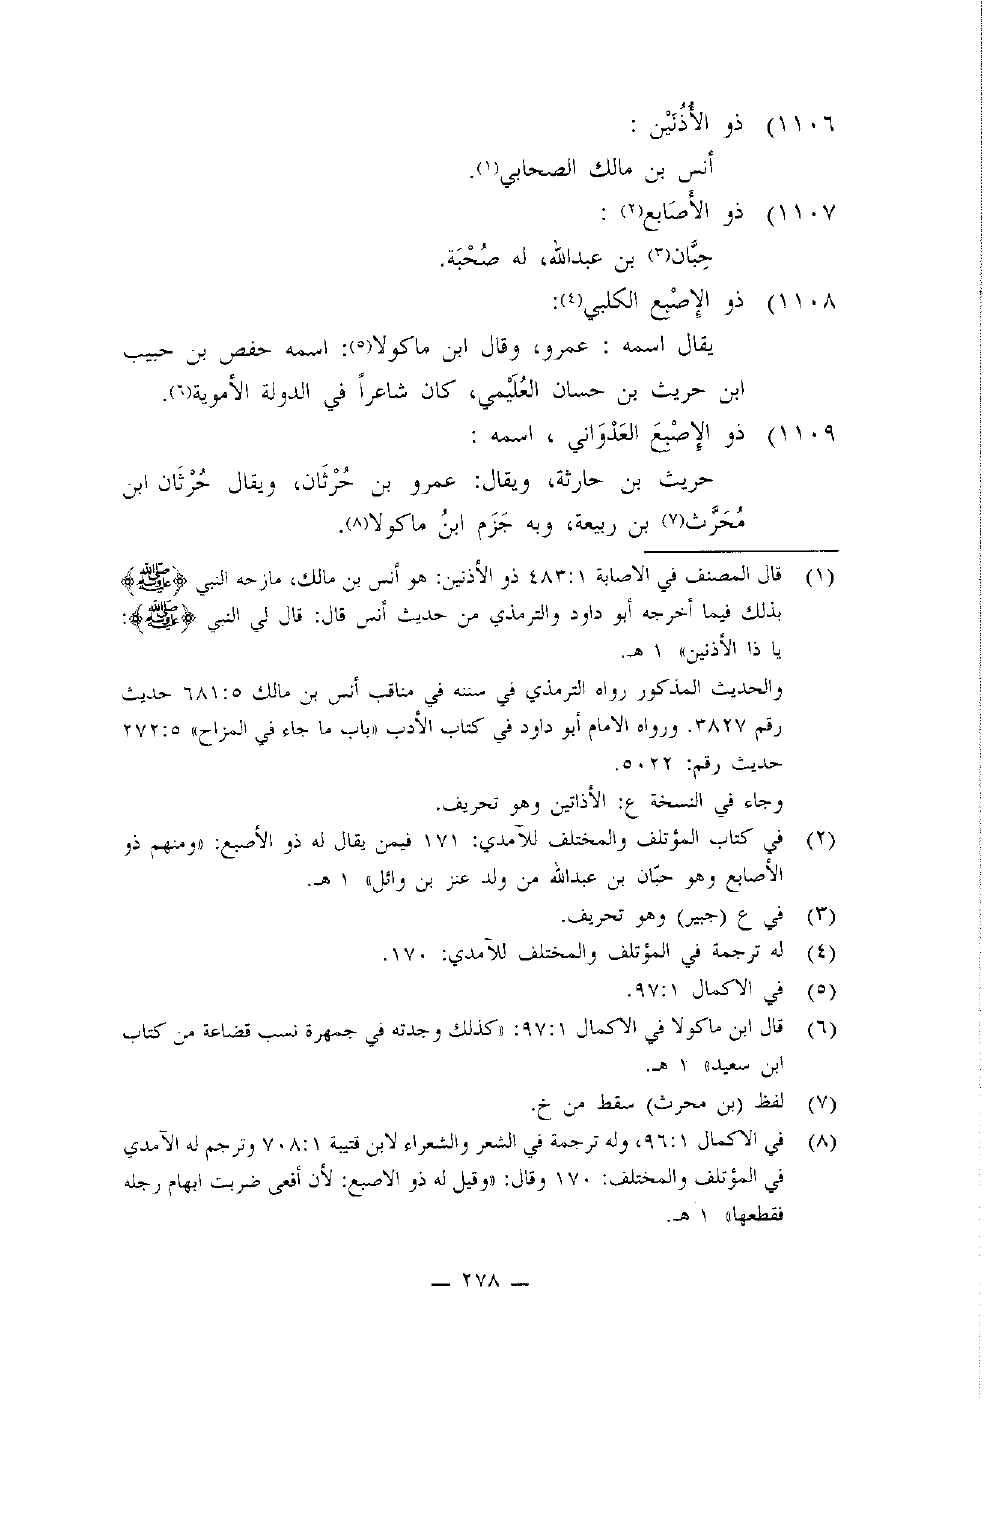 ١١٠٦) ذو الأُذُنَيْن :
أنس بن مالك الصحابي(١).
١١٠٧) ذو الأَصَابع(٢) :
حِبَّان(٣) بن عبدالله، له صُحْبَة.
١١٠٨) ذو الإِصْبع الكلبي(٤):
يقال اسمه : عمرو، وقال ابن ماكولا(٥): اسمه حفص بن حبيب
ابن حريث بن حسان العُلَيْمي، كان شاعراً في الدولة الأموية(٦).
١١٠٩) ذو الإِصْبَعَ العَدْوَاني ، اسمه :
حريث بن حارثة، ويقال: عمرو بن حُرْثَان، ويقال حُرْثَان ابن
مُحَرَّث(٧) بن ربيعة، وبه جَزَم ابنُ ماكولا(٨).
(١) قال المصنف في الاصابة ٤٨٣:١ ذو الأذنين: هو أنس بن مالك، مازحه النبي ﴿ﷺ﴾
بذلك فيما أخرجه أبو داود والترمذي من حديث أنس قال: قال لي النبي ﴿ﷺ﴾:
يا ذا الأذنين» ١ هـ.
والحديث المذكور رواه الترمذي في سننه في مناقب أنس بن مالك ٦٨١:٥ حديث
رقم ٣٨٢٧. ورواه الامام أبو داود في كتاب الأدب «باب ما جاء في المزاح» ٢٧٢:٥
حديث رقم: ٥٠٢٢.
وجاء في النسخة ع: الأذاتين وهو تحريف.
(٢) في كتاب المؤتلف والمختلف للآمدي: ١٧١ فيمن يقال له ذو الأصبع: «ومنهم ذو
الأصابع وهو حبّان بن عبدالله من ولد عنز بن وائل» ١ هـ.
(٣) في ع (جبير) وهو تحريف.
(٤) له ترجمة في المؤتلف والمختلف للآمدي: ١٧٠.
(٥) في الاكمال ٩٧:١.
(٦) قال ابن ماكولا في الاكمال ٩٧:١: «كذلك وجدته في جمهرة نسب قضاعة من كتاب
ابن سعيد» ١ هـ.
(٧) لفظ (بن محرث) سقط من خ.
(٨) في الاكمال ٩٦:١، وله ترجمة في الشعر والشعراء لابن قتيبة ٧٠٨:١ وترجم له الآمدي
في المؤتلف والمختلف: ١٧٠ وقال: «وقيل له ذو الاصبع: لأن أفعى ضربت ابهام رجله
فقطعها» ١ هـ.
— ٢٧٨ —